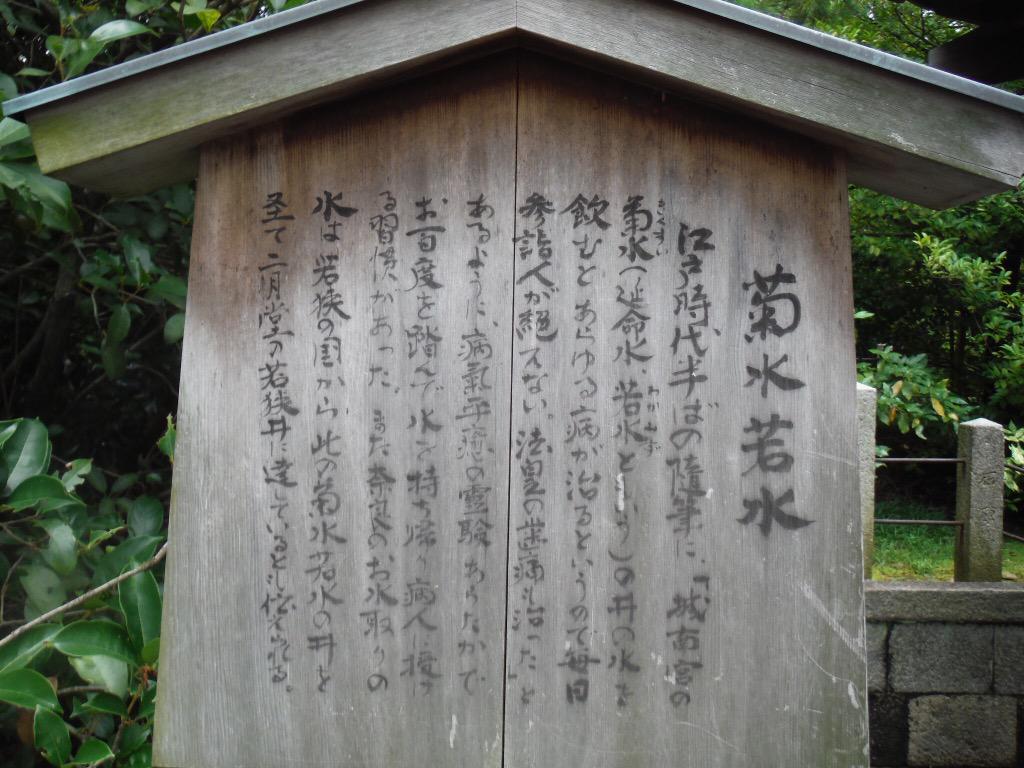 菊水若水
江戸時代半ばの随筆に、「城南宮の
菊水(延命水、若水という)の井の水を
飲むとあらゆる病が治るというので毎日
参詣人が絶えない。法皇の歯痛も治った」と
あるように、病気平癒の霊験あらたかで
お百度を踏んで水を持ち帰り病人に授け
る習慣があった。また奈良のお水取りの
水は若狭の国から、此の菊水若水の井を
至て二月堂の若狭井に達しているとも伝えられる。
きくすい
わかみず